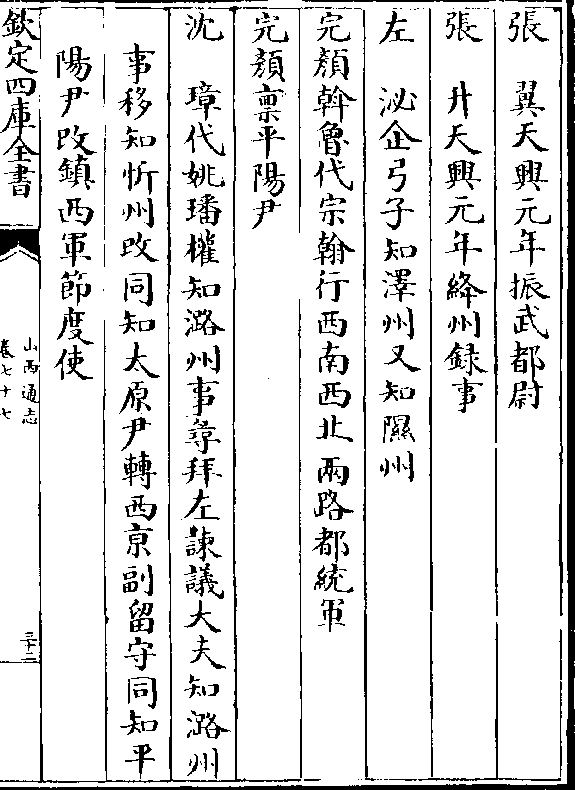 張　翼天興元年振武都尉
張　升天興元年絳州録事
左　泌企弓子知澤州又知隰州
完顏斡魯代宗翰行西南西北兩路都統軍
完顏稟平陽尹
沈　璋代姚璠權知潞州事尋拜左諫議大夫知潞州
事移知忻州改同知太原尹轉西京副留守同知平
陽尹改鎮西軍節度使
欽定四庫全書
山西通志
卷七十七
三十二